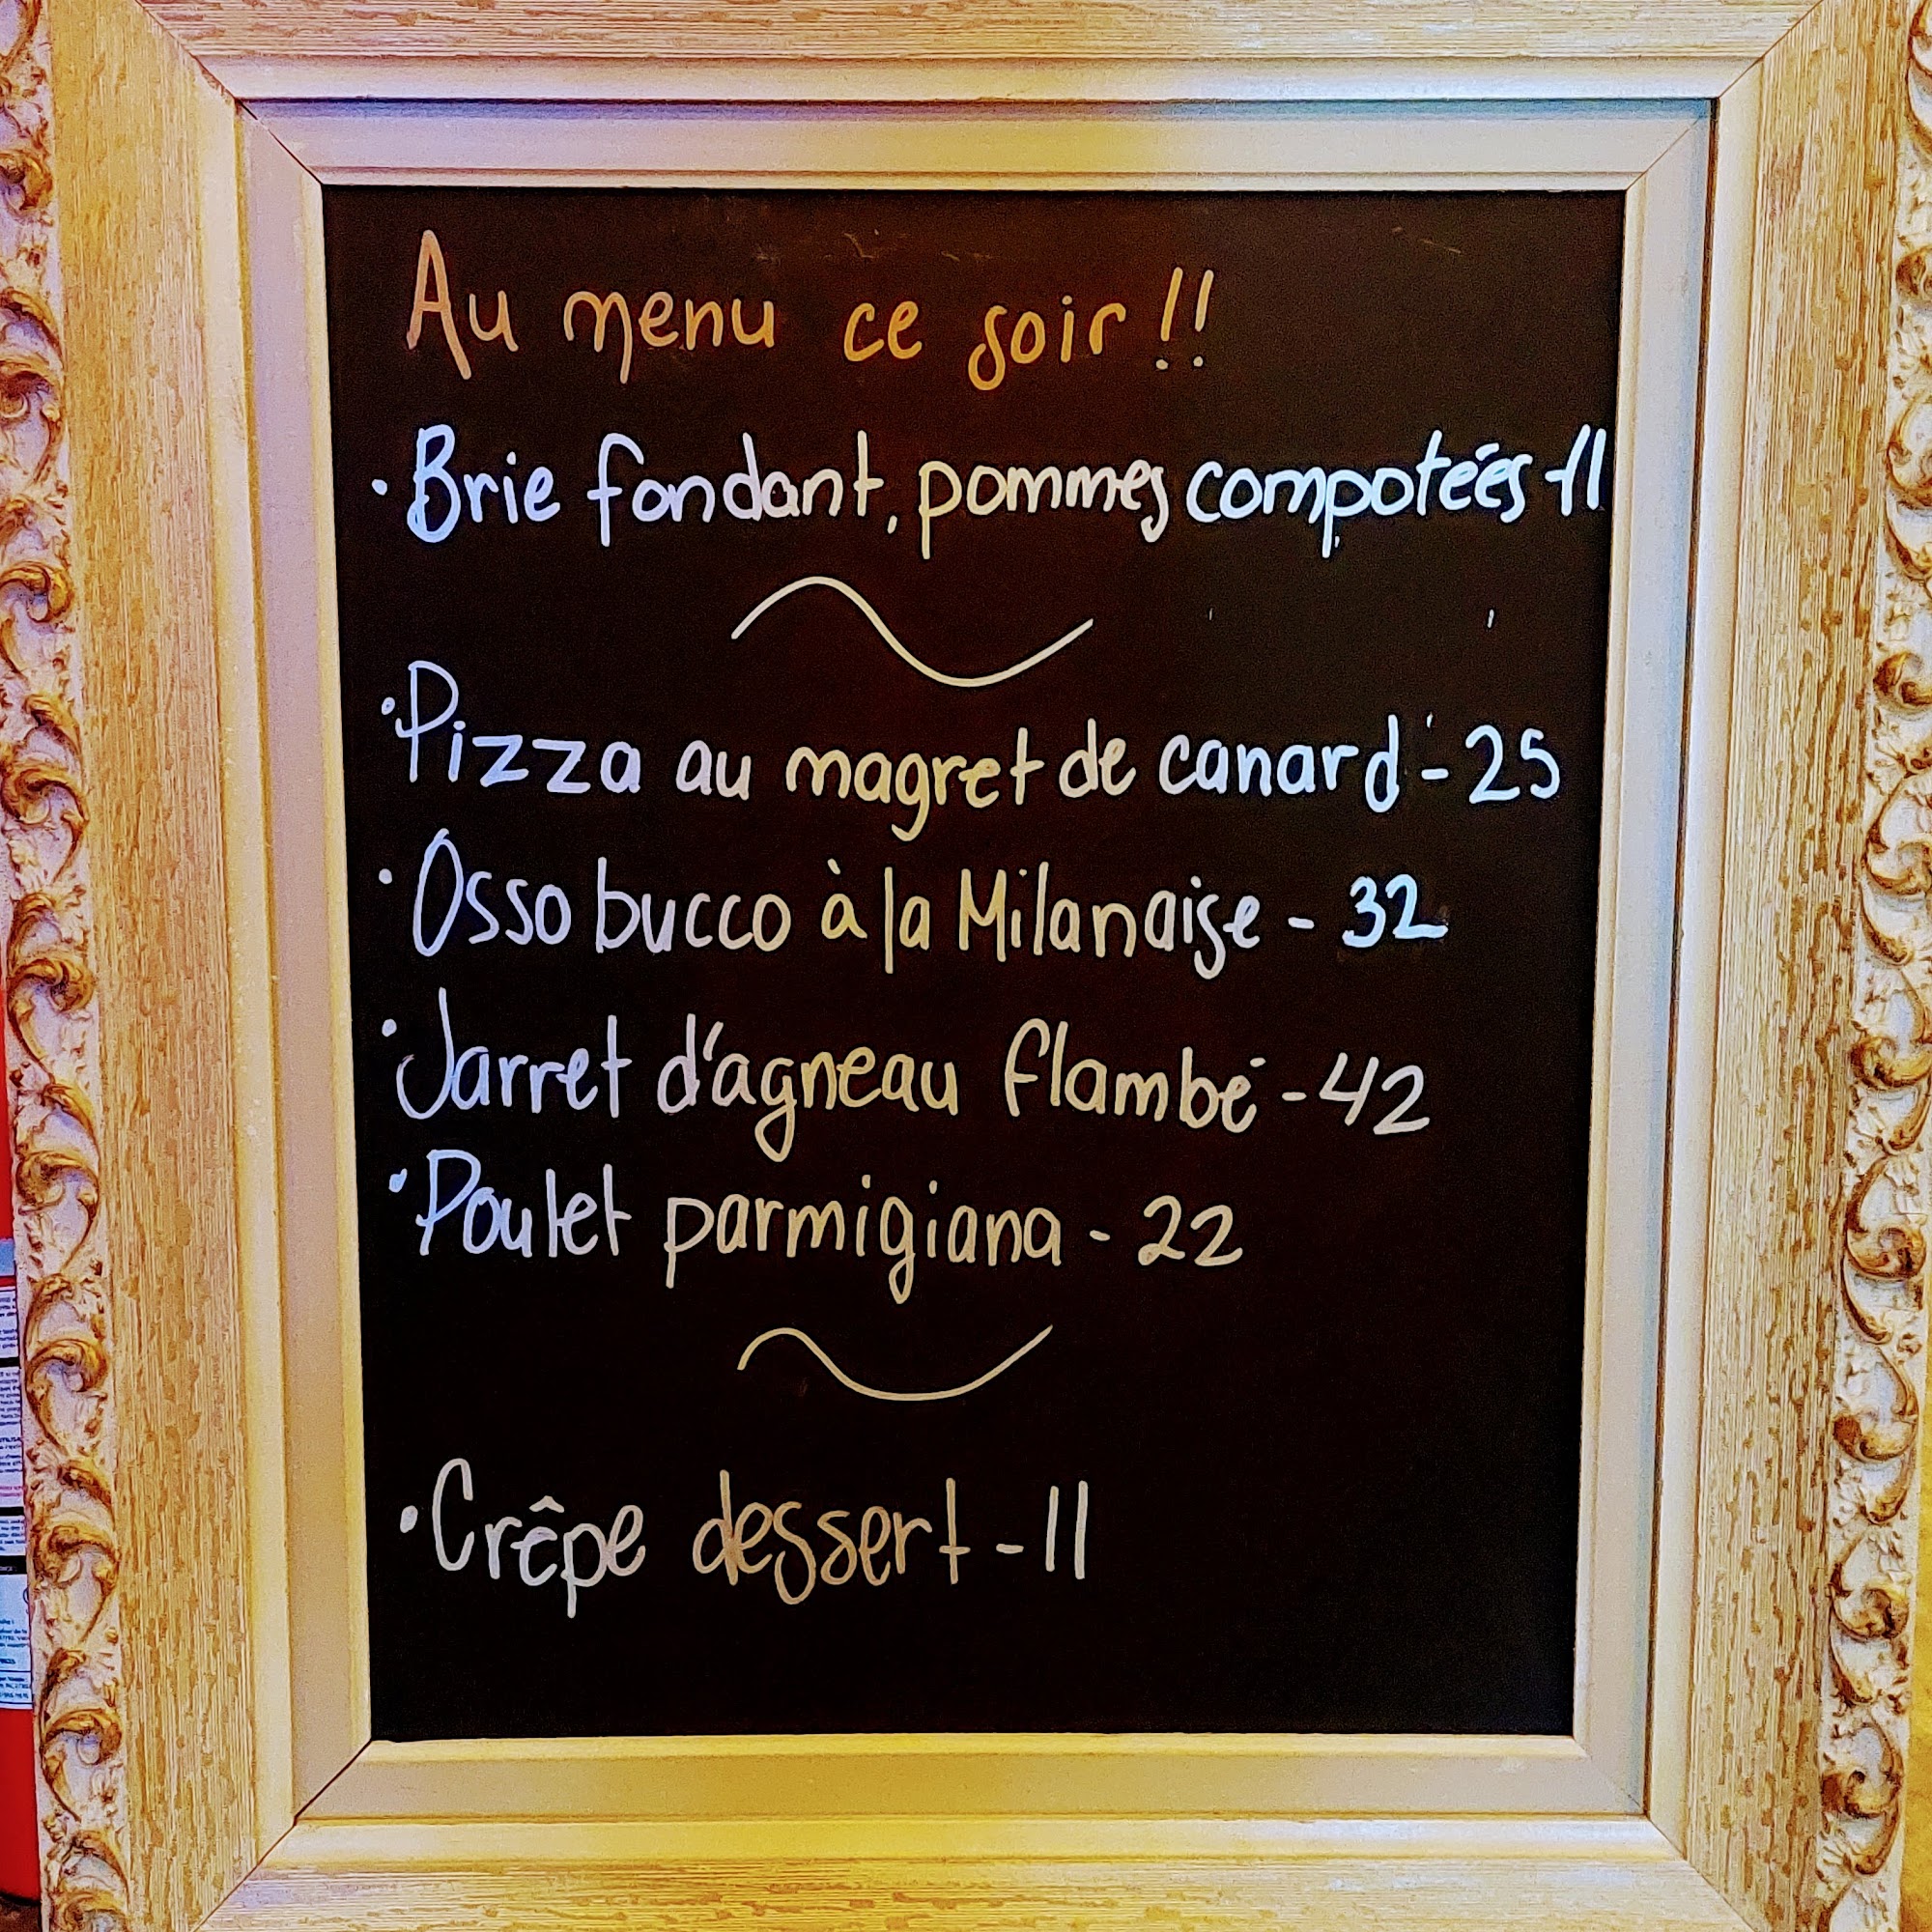 Au menu ce soir !!
· Brie fondant, pommes compotées - 11
· Pizza au magret de canard - 25
· Osso bucco à la Milanaise - 32
· Jarret d'agneau flambé - 42
· Poulet parmigiana - 22
· Crêpe dessert - 11